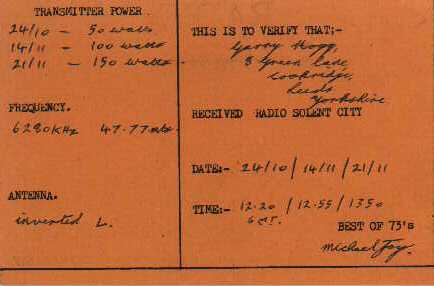 TRANSMITTER POWER.
24/10 - 50 watts
14/11 - 100 watts
21/11 - 150 watts.
FREQUENCY.
6280KHz 47.77mtr.
ANTENNA.
inverted L.
THIS IS TO VERIFY THAT:-
Garry Hogg,
8 Green Lane,
Cookridge,
Leeds
Yorkshire.
RECEIVED RADIO SOLENT CITY
DATE:- 24/10 / 14/11 / 21/11
TIME:- 12.20 / 12.55 / 1350
GMT.
BEST OF 73's
Michael